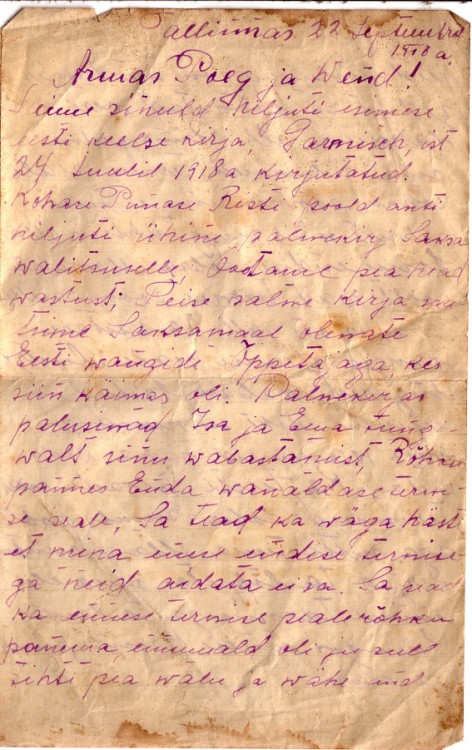 Tallinnas 22 Septembril
1918 a.
Armas Poeg ja Wend!
Saime sinuld hiljuti esimese
eesti keelse kirja, Garmisch, ist
24 Juulil 1918 a kirjutatud.
Kohase Punase Risti poold anti
hiljuti ühine palwekirj Saksa
walitsuselle. Ootame pea head
wastust; Teise palwe kirja
Saksamaal olewate
Eesti wangide Õppetajaga, kes
siin käimas oli. Palwekirjas
palusiwad Isa ja Ema
walt sinu wabastamist, Rõhku
pannes Enda wanaldase terwi-
se peale, Sa tead ka wäga häst
et mina enese endise terwise
ga neid aidata ei sa. Sa pead
ka ennese terwise peale rõhku
panema, ennemald oli ju sull
tihti pea walu ja wähe